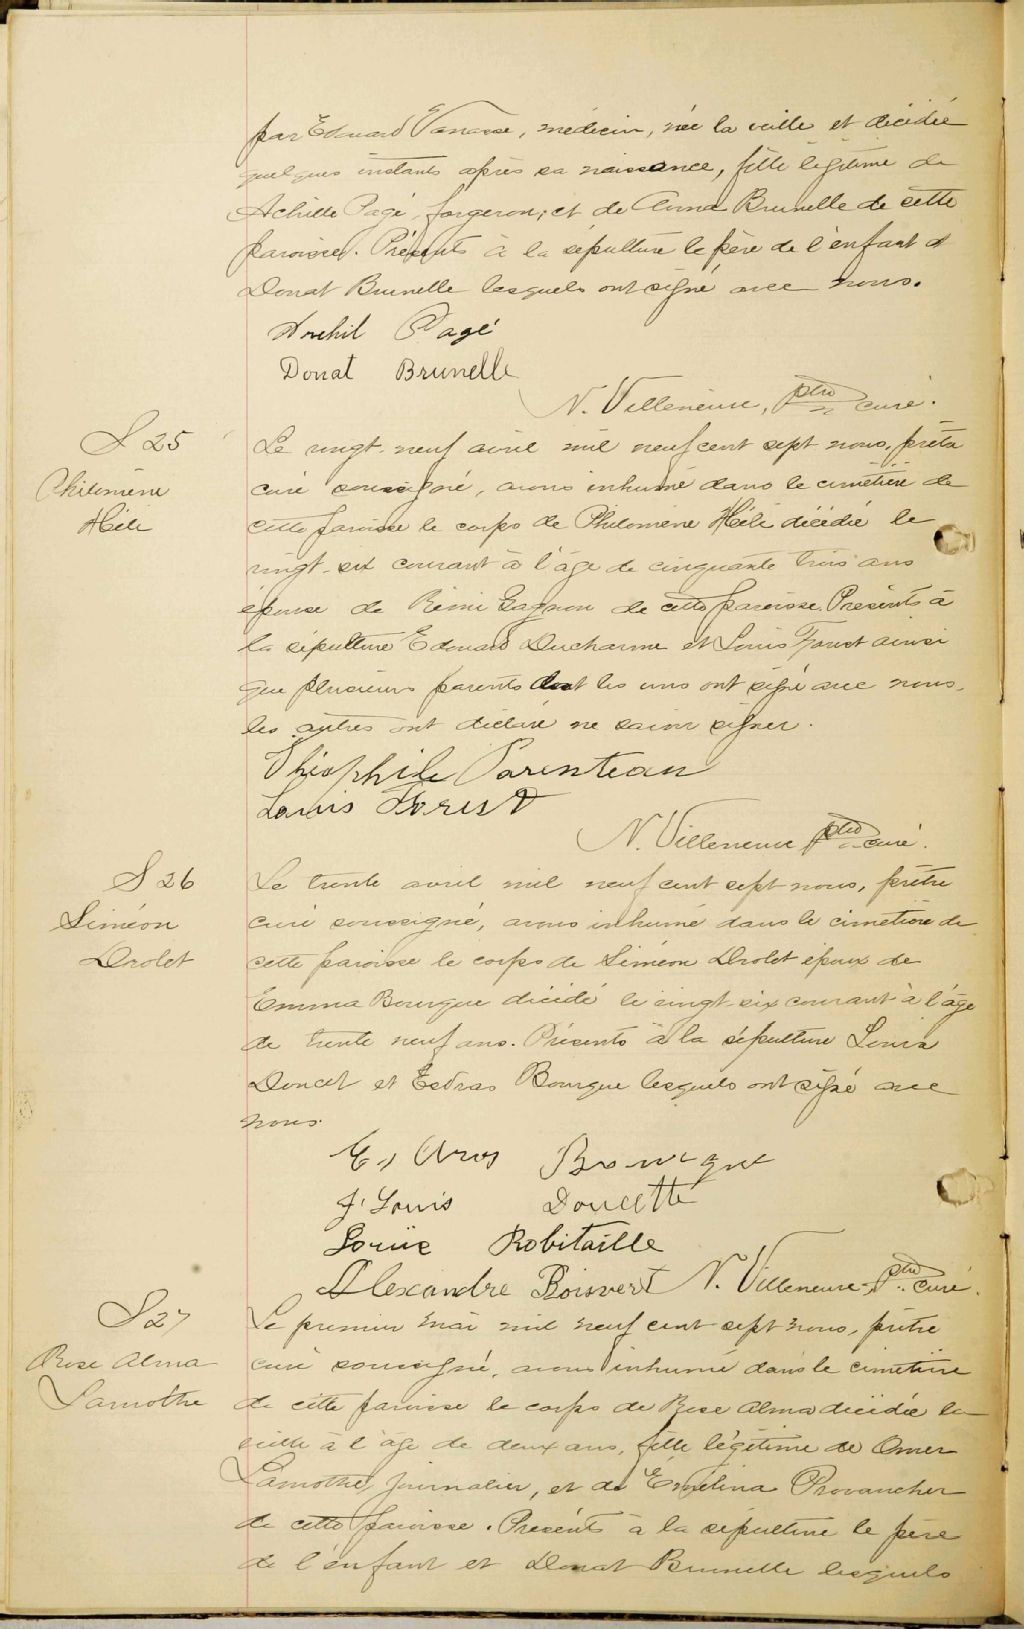 par Edouard Vanasse, médecin, née la veille et décédée
quelques instants après sa naissance, fille légitime de
Achille Pagé, forgeron, et de Anna Brunelle de cette
paroisse. Présents à la sépulture le père de l'enfant et
Donat Brunelle lesquels ont signé avec nous.
Archil Pagé
Donat Brunelle
N. Villeneuve, ptre curé.
S 25
Philomène
Héli
Le vingt-neuf avril mil neuf cent sept nous, prêtre
curé soussigné, avons inhumé dans le cimetière de
cette paroisse le corps de Philomène Héli décédée le
vingt-six courant à l'âge de cinquante trois ans
épouse de Rémi Gagnon de cette paroisse. Présents à
la sépulture Edouard Ducharme et Louis Forest ainsi
que plusieurs parents dont les uns ont signé avec nous,
les autres ont déclaré ne savoir signer.
Théophile Parenteau
Louis Forest
N. Villeneuve ptre curé.
S 26
Siméon
Drolet
Le trente avril mil neuf cent sept nous, prêtre
curé soussigné, avons inhumé dans le cimetière de
cette paroisse le corps de Siméon Drolet époux de
Emma Bourque décédé le vingt-six courant à l'âge
de trente neuf ans. Présents à la sépulture Louis
Doucet et Esdras Bourque lesquels ont signé avec
nous.
Bourque
J. Louis Doucette
Robitaille
Alexandre Boisvert N. Villeneuve, ptre curé.
S 27
Rose Alma
Lamothe
Le premier mai mil neuf cent sept nous, prêtre
curé soussigné, avons inhumé dans le cimetière
de cette paroisse le corps de Rose Alma décédée la
veille à l'âge de deux ans, fille légitime de Omer
Lamothe, journalier, et de Émélina Provancher
de cette paroisse. Présents à la sépulture le père
de l'enfant et Donat Brunelle lesquels